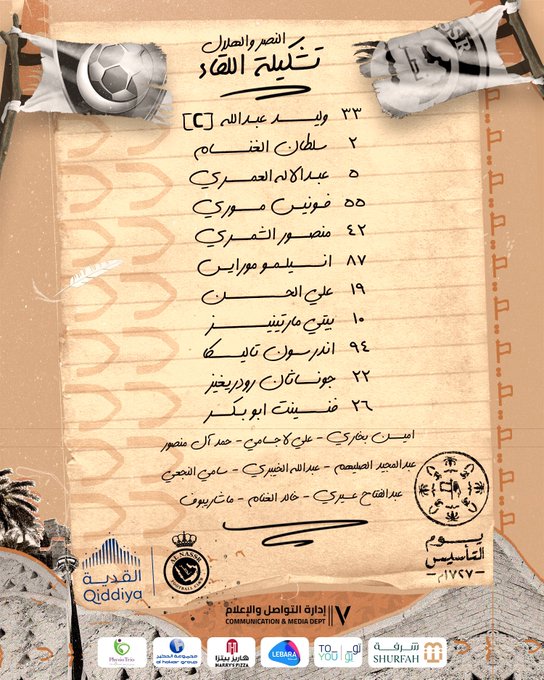 النصر والهلال
تشكيلة اللقاء
٣٣ وليد عبدالله [C]
٢ سلطان الغنام
٥ عبدالاله العمري
٥٥ فونيس موري
٤٢ منصور الشمري
٨٧ انسيلمو مورايس
١٩ علي الحسن
١٠ بيتي مارتينيز
٩٤ اندرسون تاليسكا
٢٢ جوناثان رودريغيز
٢٦ فنسينت ابو بكر
امين بخاري - علي لاجامي - حمد آل منصور
عبدالمجيد الصليهم - عبدالله الخيبري - سامي النجعي
عبدالفتاح عسيري - خالد الغنام - ماشاريبوف
يوم
التأسيس
١٧٢٧م
القدية
Qiddiya
AL NASSR
FOOTBALL CLUB
إدارة التواصل والإعلام
COMMUNICATION & MEDIA DEPT
PhysioTrio
al hokair group
هاريز بيتزا
HARRY'S PIZZA
LEBARA
TO YOU
شرفة
SHURFAH